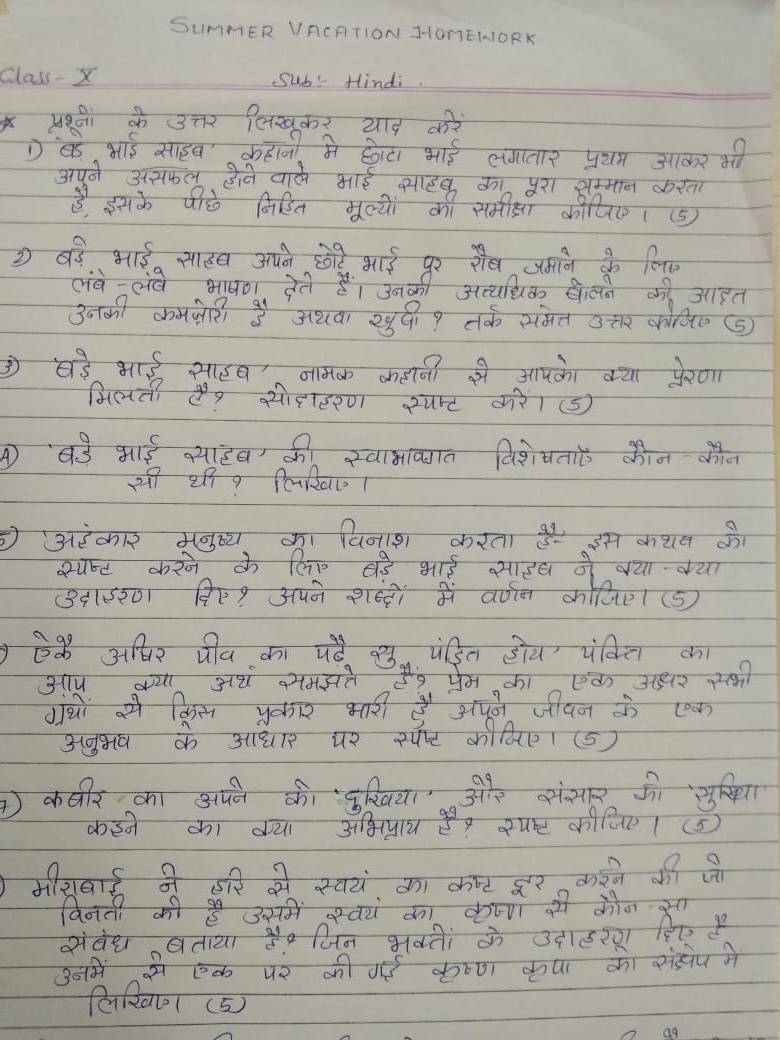 SUMMER VACATION HOMEWORK
Class - X Sub:- Hindi.
* प्रश्नों के उत्तर लिखकर याद करें
1) 'बड़े भाई साहब' कहानी में छोटा भाई लगातार प्रथम आकर भी
अपने असफल होने वाले भाई साहब का पूरा सम्मान करता
है, इसके पीछे निहित मूल्यों की समीक्षा कीजिए। (5)
2) बड़े भाई साहब अपने छोटे भाई पर रौब जमाने के लिए
लंबे-लंबे भाषण देते हैं। उनकी अत्यधिक बोलने की आदत
उनकी कमज़ोरी है अथवा खूबी? तर्क समेत उत्तर कीजिए (5)
3) 'बड़े भाई साहब' नामक कहानी से आपको क्या प्रेरणा
मिलती है? सोदाहरण स्पष्ट करें। (5)
4) 'बड़े भाई साहब' की स्वाभावगत विशेषताएँ कौन-कौन
सी थी? लिखिए।
5) 'अहंकार मनुष्य का विनाश करता है- इस कथन को
स्पष्ट करने के लिए बड़े भाई साहब ने क्या-क्या
उदाहरण दिए? अपने शब्दों में वर्णन कीजिए। (5)
) ऐकै अषिर पीव का पढ़ै सु पंडित होय' पंक्ति का
आप क्या अर्थ समझते हैं? प्रेम का एक अक्षर सभी
ग्रंथों से किस प्रकार भारी है अपने जीवन के एक
अनुभव के आधार पर स्पष्ट कीजिए। (5)
7) कबीर का अपने को 'दुखिया' और संसार को 'सुखिया
कहने का क्या अभिप्राय है? स्पष्ट कीजिए। (5)
) मीराबाई ने हरि से स्वयं का कष्ट दूर करने की जो
विनती की है उसमें स्वयं का कृष्ण से कौन-सा
संबंध बताया है? जिन भक्तों के उदाहरण दिए है
उनमें से एक पर की गई कृष्ण कृपा का संक्षेप में
लिखिए। (5)